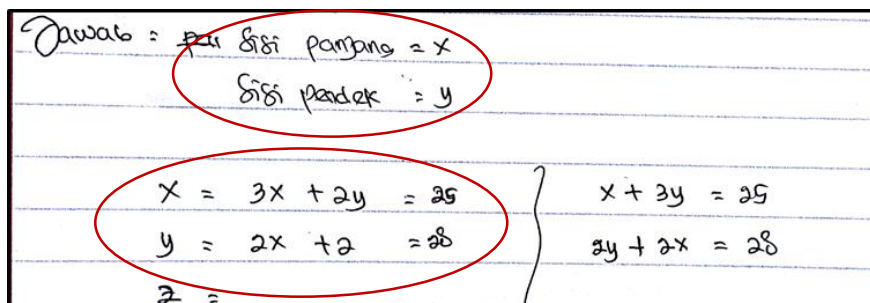 Jawab = sisi panjang = x
sisi pendek = y
x = 3x + 2y = 25
y = 2x + 2 = 28
2 =
x + 3y = 25
2y + 2x = 28